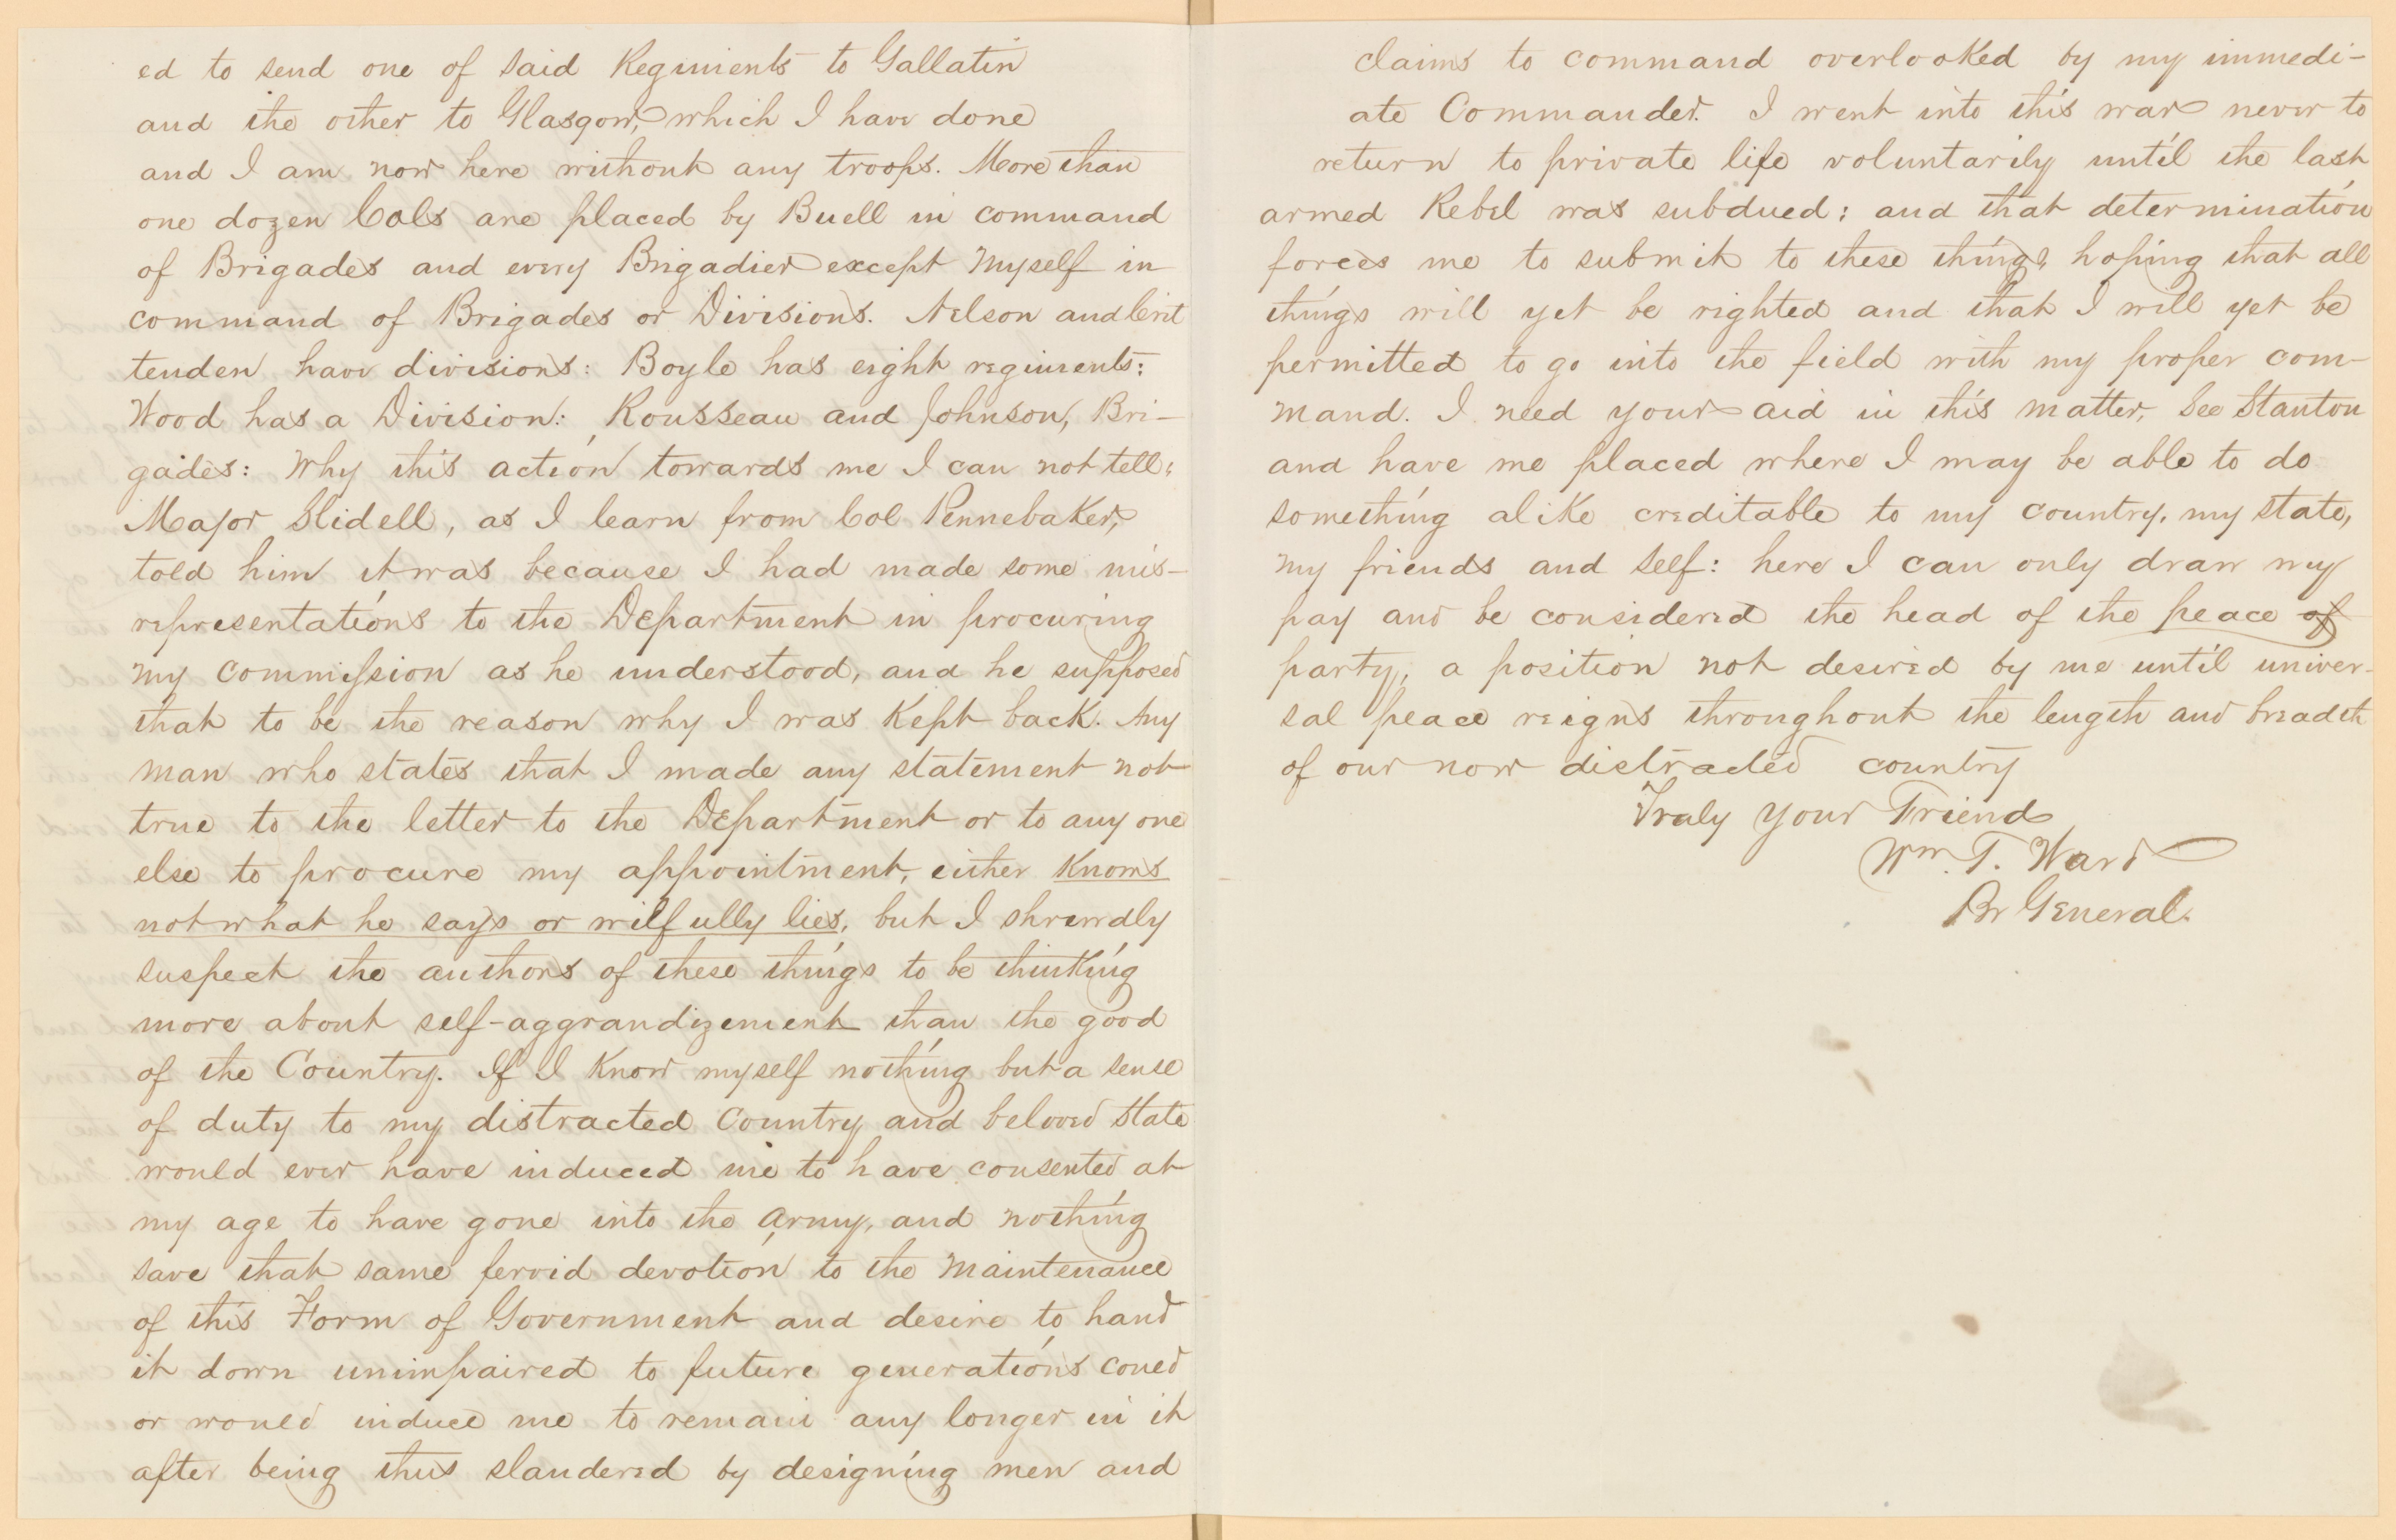 ed to send one of said Regiments to Gallatin
and the other to Glasgow, which I have done
and I am now here without any troops. More than
one dozen Cols are placed by Buell in command
of Brigades and every Brigadier except myself in
command of Brigades or Divisions. Nelson and Crit
tenden have divisions: Boyle has eight regiments:
Wood has a Division: Rousseau and Johnson, Bri-
gades: Why this action towards me I can not tell:
Major Slidell, as I learn from Col Pennebaker,
told him it was because I had made some mis-
representations to the Department in procuring
my commission as he understood, and he supposed
that to be the reason why I was Kept back. Any
man who states that I made any statement not
true to the letter to the Department or to any one
else to procure my appointment, either Knows
not what he says or wilfully lies, but I shrewdly
suspect the authors of these things to be thinking
more about self-aggrandizement than the good
of the Country. If I Know myself nothing but a sense
of duty to my distracted Country and beloved State
would ever have induced me to have consented at
my age to have gone into the Army, and nothing
save that same fervid devotion to the Maintenance
of this Form of Government and desire to hand
it down unimpaired to future generations could
or would induce me to remain any longer in it
after being thus slandered by designing men and
claims to command overlooked by my immedi-
ate Commander. I went into this war never to
return to private life voluntarily until the last
armed Rebel was subdued: and that determination
forces me to submit to these things, hoping that all
things will yet be righted and that I will yet be
permitted to go into the field with my proper com-
mand. I need your aid in this matter, See Stanton
and have me placed where I may be able to do
something alike creditable to my country, my state,
my friends and self: here I can only draw my
pay and be considered the head of the peace of
party, a position not desired by me until univer-
sal peace reigns throughout the length and breadth
of our now distracted country
Truly your Friend
Wm. T. Ward
Br General.